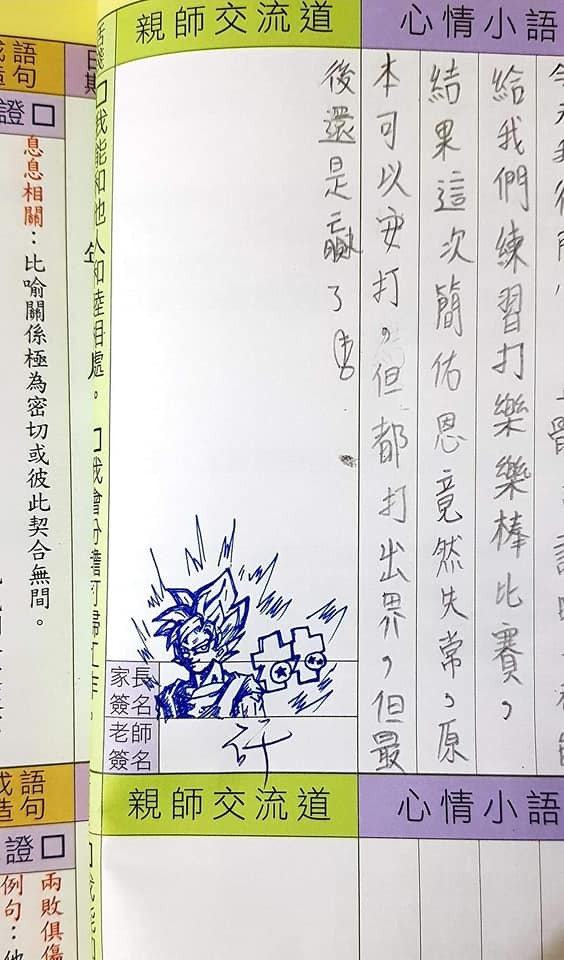 心情小語
親師交流道
給我們練習打樂樂棒比賽，
結果這次簡佑恩竟然失常，原
本可以安打，但都打出界，但最
後還是贏了
家長
簽名
老師
簽名
許
日期
□我能和他人和睦相處。
□我會分擔打掃工作。
語
句
證□
息息相關：比喻關係極為密切或彼此契合無間。
心情小語
親師交流道
語
句
證□
兩敗俱傷
例句：他